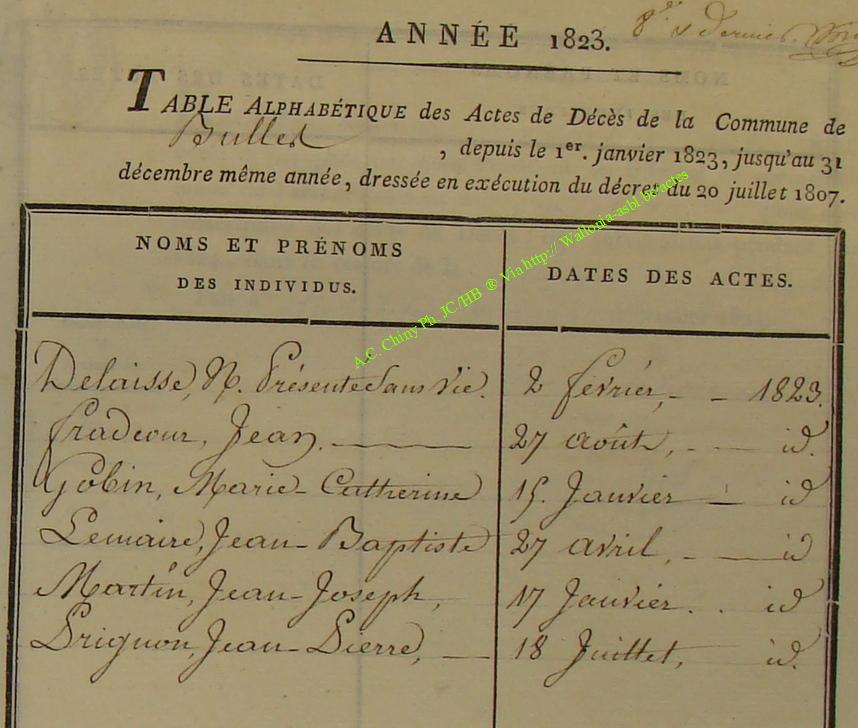 ANNÉE 1823.
TABLE ALPHABÉTIQUE des Actes de Décès de la Commune de
Bulles
, depuis le 1er. janvier 1823, jusqu'au 31
décembre même année, dressée en exécution du décret du 20 juillet 1807.
NOMS ET PRÉNOMS
DES INDIVIDUS.
DATES DES ACTES.
A.C. Chiny Ph. JC/HB ® Via http:// Wallonia-asbl.be/actes
Delaisse, N. Présenté Sans Vie. 2 février, - - 1823.
fradcour, Jean. 27 août, - id.
Gobin, Marie-Catherine 15. Janvier - id
Lemaire, Jean-Baptiste 27 avril, - id
Martin, Jean-Joseph, 17 Janvier. . id
Prignon, Jean-Pierre, - 18 Juillet, id.